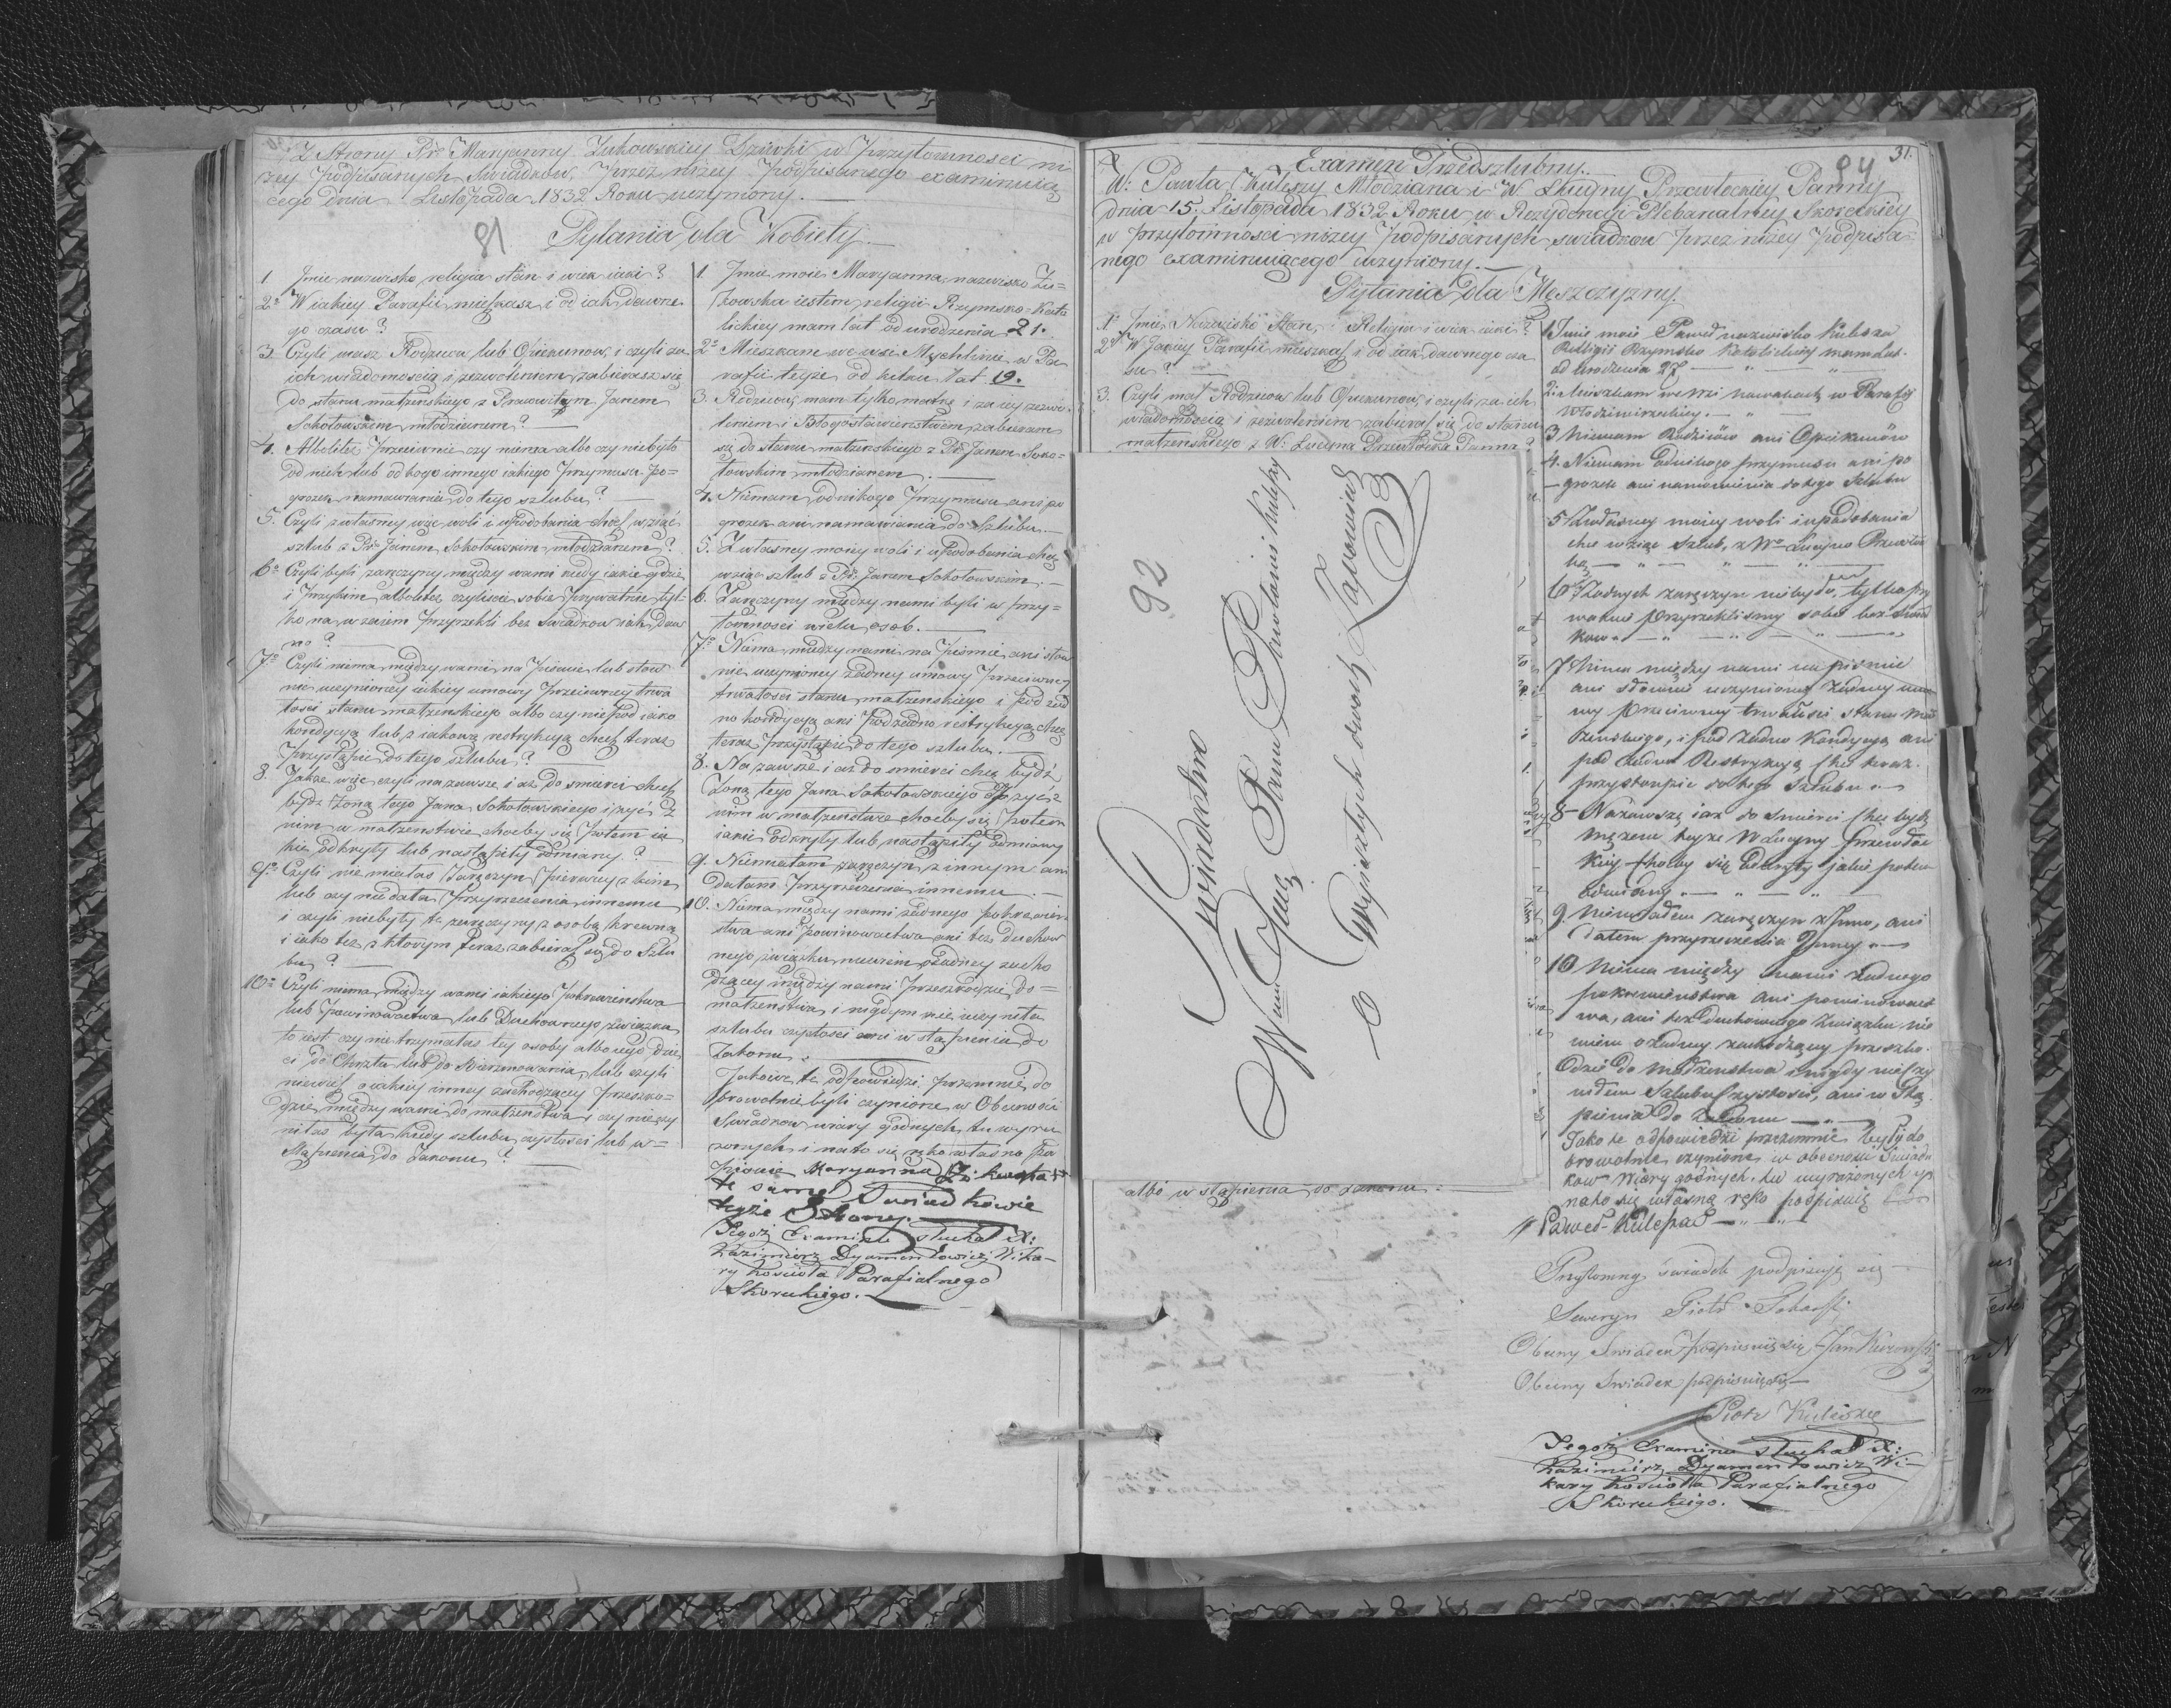 Z Strony Pr: Maryanny Żukowskiey Dziewki w Przytomnosci ni
zey Podpisanych Swiadkow, Przez niżey Podpisanego examinuią
cego dnia Listopada 1832 Roku uczyniony.
81
Pytania dla Kobiety.
1. Jmie nazwisko religia stan i wiek iaki?
2o W iakiey Parafii mieszkasz i od iak dawne
go czasu?
3. Czyli masz Rodzicow lub Opiekunow, i czyli za
ich wiadomoscią i zezwoleniem zabierasz się
do stanu małżenskiego z Pracowitym Janem
Sokołowskim młodzianem?
4. Albo też Przeciwnie czy niema albo czy niebyło
od nich lub od kogo innego iakiego Przymusu Po=
grozek namawiania do tego szlubu?
5. Czyli z własney więc woli i upodobania chcesz wziąść
szlub z Pr: Janem Sokołowskim młodzianem?
6o Czyli byli zaręczyny między wami kiedy iakie gdzie
i Przykim, albo też czyliscie sobie Prywatnie tyl=
ko na wzaiem Przyrzekli bez Swiadkow iak daw
no?
7o Czyli niema między wami na Pismie lub słow
nie uczynioney iakiey umowy Przeciwney trwa
łosci stanu małżenskiego albo czy nie Pod iaką
kondycyą lub z iakową restrykcyą chcesz teraz
Przystąpić do tego szlubu?
8. Jakże więc czyli na zawsze i aż do smierci chcesz
bydź żoną tego Jana Sokołowskiego i żyć z
nim w małżenstwie choćby się Potem ia
kie odkryły lub nastąpiły odmiany?
9o Czyli nie miałas Zaręczyn Pierwey z kim
lub czy niedała Przyrzeczenia innemu
i czyli niebyły te zaręczyny z osobą krewną
i iako też z którym teraz zabierasz się do Szlu
bu?
10o Czyli niema między wami iakiego Pokrewienstwa
lub Powinowactwa lub Duchownego związku
to iest czy nie trzymałas tey osoby albo iego Dzie
ci do Chrztu lub do Bierzmowania, lub czyli
niewiesz o iakiey inney zachodzącey Przeszko=
dzie między wami do małżenstwa i czy nieczy
niłas była kiedy szlubu czystosci lub w=
stąpienia do Zakonu?
1. Jmie moie Maryanna, nazwisko Żu=
kowska iestem, religii Rzymsko-Kato
lickiey mam lat od urodzenia 21.
2o Mieszkam we wsi Mychlinie, w Pa
rafii teyże od kilku lat 19.
3. Rodzicow mam tylko matkę i za iey zezwo
leniem i Błogosławienstwem zabieram
się do stanu małżenskiego z Pr: Janem Soko=
łowskim młodzianem.
4. Niemam od nikogo Przymusu ani po
grozek ani namawiania do Szlubu.
5. Z własney moiey woli i upodobania chcę
wziąć szlub z Pr: Janem Sokołowskim.
6. Zaręczyny między nami byli w przy=
tomnosci wielu osob.
7o Niema między nami na Pismie ani słow
nie uczynioney żadney umowy Przeciwney
trwałosci stanu małżenskiego i Pod żad
no kondycyą ani Pod żadno restrykcyą chcę
teraz Przystąpić do tego szlubu.
8. Na zawsze i aż do smierci chcę bydź
Zoną tego Jana Sokołowskiego i żyć z
nim w małżenstwie choćby się Potem
iakie odkryły lub nastąpiły odmiany
9. Niemiałam zaręczyn z innym ani
dałam Przyrzeczenia innemu.
10. Niema między nami żadnego Pokrewien
stwa ani Powinowactwa ani też Duchow
nego związku niewiem o żadney zacho
dzącey między nami Przeszkodzie do=
małżenstwa i nigdym nie uczyniła
szlubu czystosci ani wstąpienia do
Zakonu.
Jakowe te odpowiedzi przezemnie do
browolnie byli czynione w Obecności
Swiadkow wiary godnych tu wyra
żonych i na to się ręką własną Pod
pisuie Maryanna
te same Swiadkowie
tegoż Strony.
Tegoż Examinu słuchał X:
Kazimierz Dyamentowicz Wika-
ry Kościoła Parafialnego
Skoreckiego.
31.
94
Examen Przedszlubny.
W: Pawła Kuleszy Młodziana i W. Lucyny Przewłockiey Panny
dnia 15. Listopada 1832 Roku w Rezydencyi Plebanalney Skoreckiey
w przytomnosci niżey Podpisanych swiadkow Przez niżey Podpisa=
nego examinuiącego uczyniony.
Pytania dla Męszczyzny.
1o Jmie, Nazwisko Stan, Religia i wiek iaki?
2o W Jakiey Parafii mieszkasz i od iak dawnego cza
su?
3. Czyli masz Rodzicow lub Opiekunow, i czyli za ich
wiadomoscią i zezwoleniem zabierasz się do stanu
małżenskiego z W: Lucyną Przewłocką Panną?
92
Swiadectwo
Wmu Jmci Panu Pawłowi Kuleszy
o Wyiszłych dwoich Zapowiedz
albo wstąpienia do Zakonu
1 Jmie moie Paweł nazwisko Kulesza
Religii Rzymsko Katolickiey mam lat
od Urodzenia 27
2. Mieszkam we wsi w Parafii
Włodzimirzeckiey.
3 Niemam Rodziców ani Opiekunów
4. Niemam od nikogo przymusu ani po
grozek ani namowienia do tego Szlubu
5 Z własney moiey woli i upodobania
chce wziąc Szlub, z Wo Lucyną Przewłoc
ką
6 Żadnych zaręczyn niebyło, tylko pry
watnie Przyrzeklismy sobie bez Swiad
kow
7 Niema między nami na pismie
ani słownie uczynioney Żadney umo
wy Przeciwney trwałości stanu Mał
żenskiego, i pod Żadno Kondycyą ani
pod Żadno Restrykcyą chce teraz
przystonpić do tego Szlubu
8 Nazawszę iaż do Smierci chcę bydź
Mężem teyże W Lucyny Przewłoc
kiey choćby się Odkryły jakie potem
odmiany.
9. Niemiałem zaręczyn z Jnno, ani
dałem przyrzeczenia Jnney
10 Niema między nami Żadnego
pokrewieństwa ani powinowact
wa, ani też Duchownego Związku nie
wiem o Żadney zachodzącey przeszko.
dzie do Małżenstwa i nigdy nieczy
niłem Szlubu Czystosci, ani wstą
pienia do Zakonu
Jako te odpowiedzi przezemnie były do
browolnie czynione w obecnosci Swiad
kow Wiary godnych, tu wyrażonych y
nato się własną ręko podpisuię
Paweł Kulesza
Przytomny swiadek podpisuję się
Seweryn Piotr
Obecny Swiadek Podpisuię się Jan
Obecny Swiadek podpisuię się
Piotr Kulesza
Tegoż Examinu słuchał X:
Kazimierz Dyamentowicz Wi-
kary Kościoła Parafialnego
Skoreckiego.